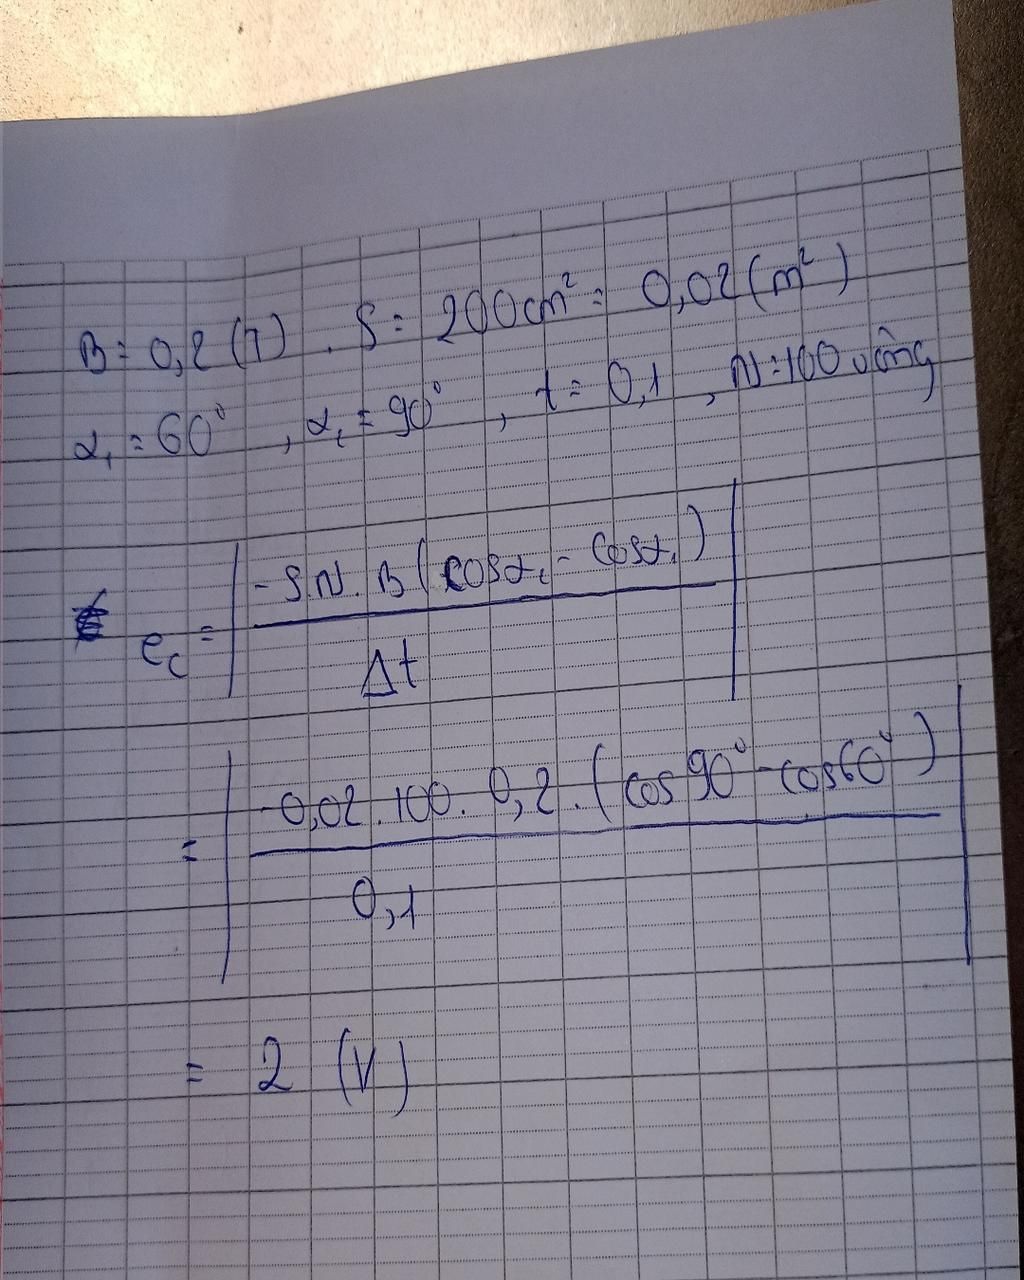 B = 0,2 (T) . S = 200cm² = 0,02 (m²)
α₁ = 60° , α₂ = 90° , t = 0,1 , N = 100 vòng
e_c = | -S.N. B (cosα₂ - cosα₁) / Δt |
= | -0,02 . 100 . 0,2 . (cos 90° - cos60°) / 0,1 |
= 2 (V)